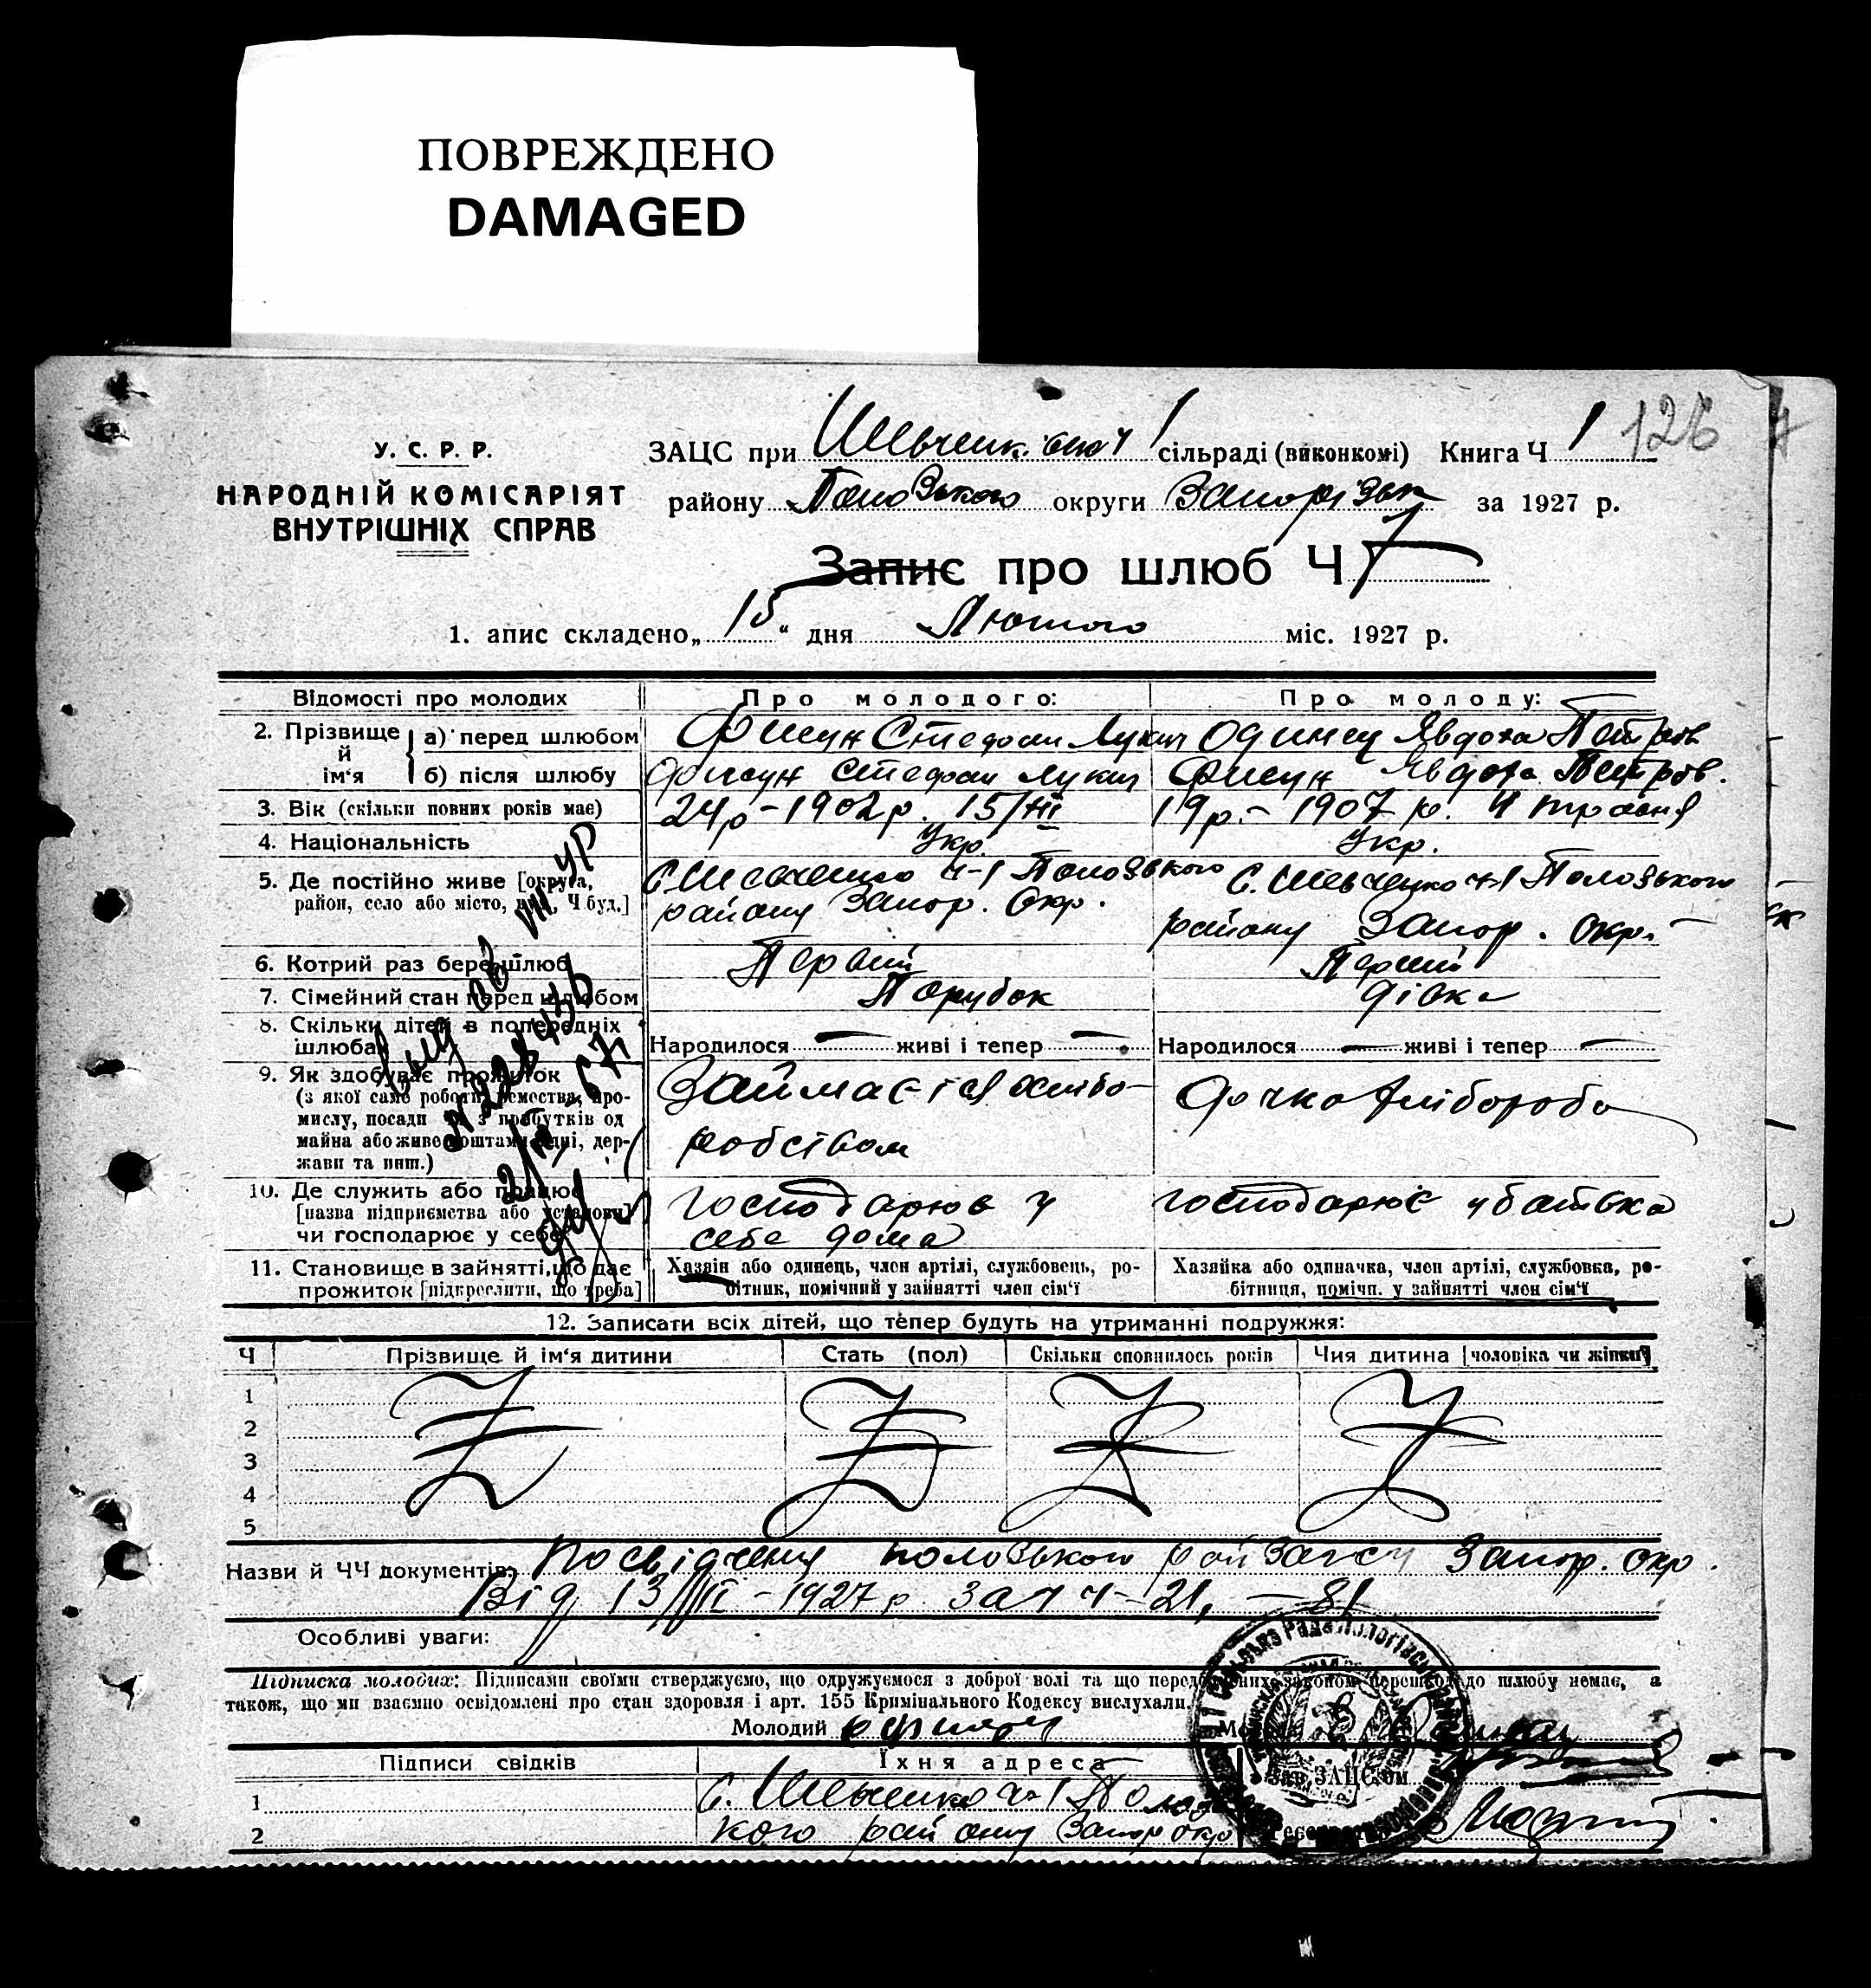 ПОВРЕЖДЕНО
DAMAGED
У. С. Р. Р.
НАРОДНІЙ КОМІСАРІЯТ
ВНУТРІШНІХ СПРАВ
ЗАЦС при Шевченківськ Ч 1 сільраді (виконкомі) Книга Ч 1 126
району Половського округи Запорізьк за 1927 р.
Запис про шлюб Ч 7
1. апис складено „ 15 “ дня Лютого міс. 1927 р.
Відомості про молодих Про молодого: Про молоду:
2. Прізвище й ім‘я
а) перед шлюбом Фисун Стефан Лукич Одинец Явдоха Петров
б) після шлюбу Фисун Стефан Лукич Фисун Явдоха Петров.
3. Вік (скільки повних років має) 24 р – 1902 р. 15/III 19 р. – 1907 р. 4 травня
4. Національність Укр. Укр.
5. Де постійно живе [округа,
район, село або місто, вул., Ч буд.]
С. Шевченко Ч-1 Половського
району Запор. Окр.
С. Шевченко Ч-1 Половського
району Запор. Окр.
6. Котрий раз бере шлюб Первий Перший
7. Сімейний стан перед шлюбом Парубок дівка
8. Скільки дітей в попередніх
шлюба
Народилося — живі і тепер — Народилося — живі і тепер —
9. Як здобуває прожиток
(з якої саме роботи, ремества, про-
мислу, посади з прибутків од
майна або живе коштами рідні, дер-
жави та инш.)
Займається хлібо-
робством
дочка хлібороба
10. Де служить або працює
[назва підприємства або установи]
чи господарює у себе
господарює у
себе дома
господарює у батька
11. Становище в зайнятті, що дає
прожиток [підкреслити, що треба]
Хазяїн або одинець, член артілі, службовець, ро-
бітник, помічний у зайнятті член сім‘ї
Хазяйка або одиначка, член артілі, службовка, ро-
бітниця, помічн. у зайнятті член сім‘ї
12. Записати всіх дітей, що тепер будуть на утриманні подружжя:
Ч Прізвище й ім‘я дитини Стать (пол) Скільки сповнилось років Чия дитина [чоловіка чи жінки]
1
2
3
4
5
Назви й ЧЧ документів: Посвідчення половського райЗагсу Запор. окр.
Від 13/II – 1927 р за Ч – 21, – 81
Особливі уваги:
Підписка молодих: Підписами своїми стверджуємо, що одружуємося з доброї волі та що передбачених законом перешкод до шлюбу немає, а
також, що ми взаємно освідомлені про стан здоровля і арт. 155 Кримінального Кодексу вислухали.
Молодий
Підписи свідків Їхня адреса Зав. ЗАЦС'ом
1 С. Шевченко Ч-1 Полов
2 кого району Запор окр